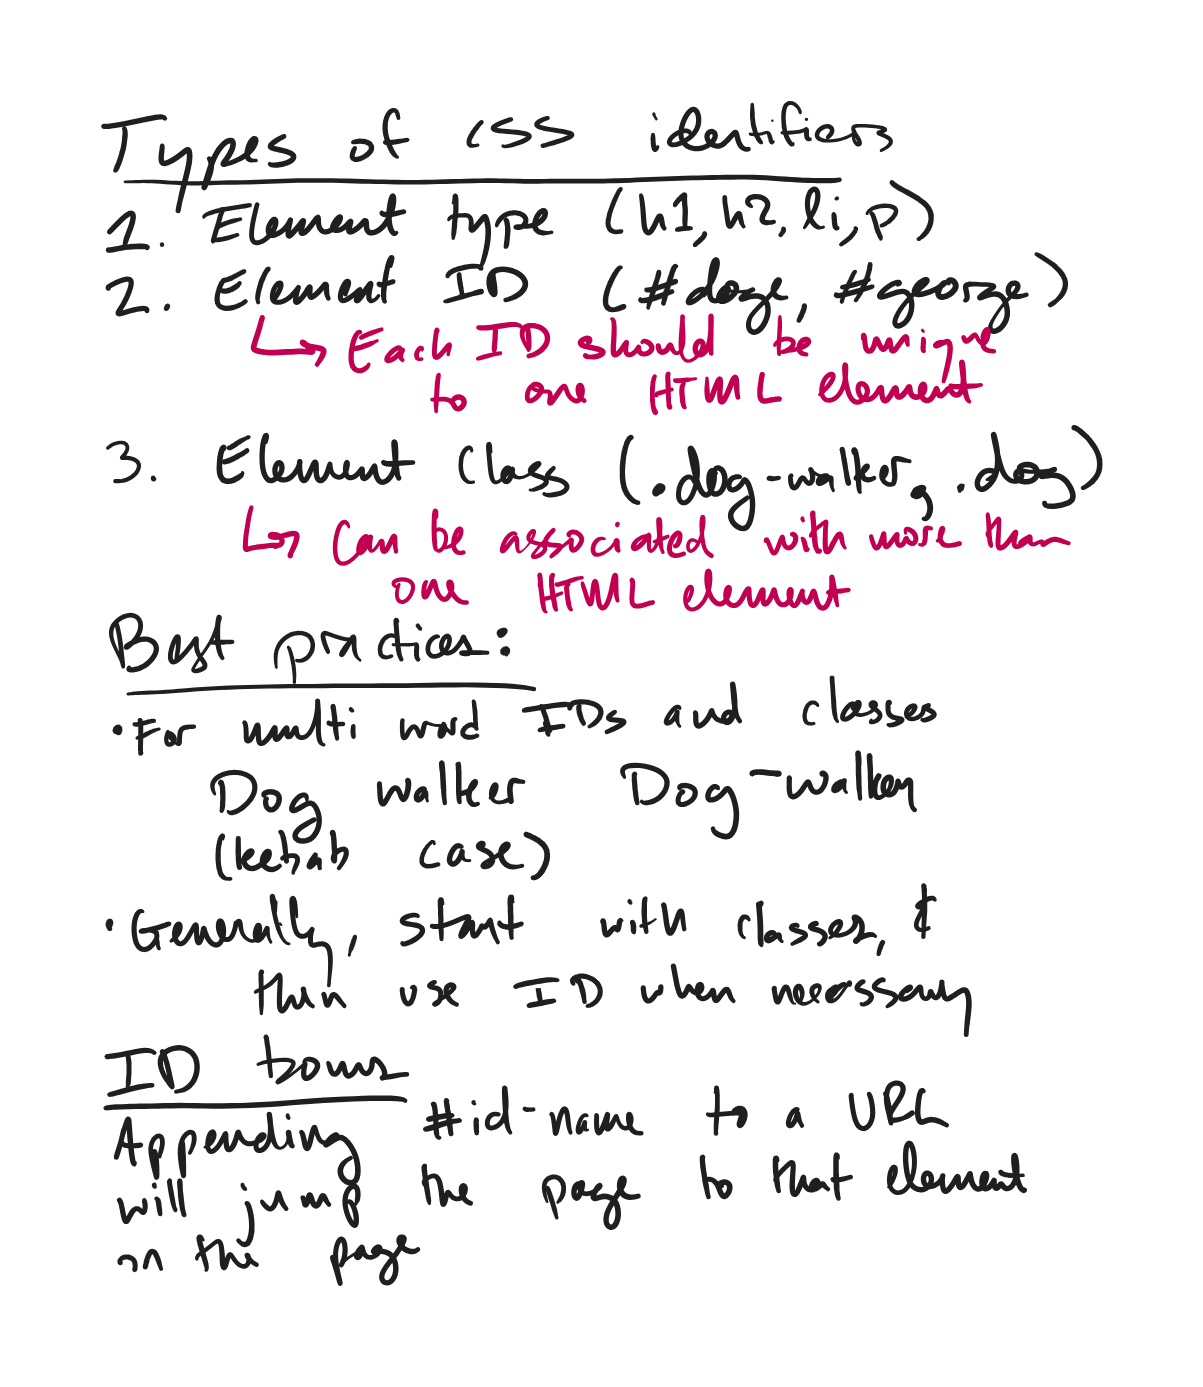 Types of CSS identifiers
1. Element type (h1, h2, li, p)
2. Element ID (#doge, #george)
↳ Each ID should be uniqe
to one HTML element
3. Element Class (.dog-walker, .dog)
↳ Can be associated with more than
one HTML element
Best practices:
• For multi word IDs and classes
Dog walker Dog-walker
(kebab case)
• Generally, start with classes, &
then use ID when necessary
ID bonus
Appending #id-name to a URL
will jump the page to that element
on the page